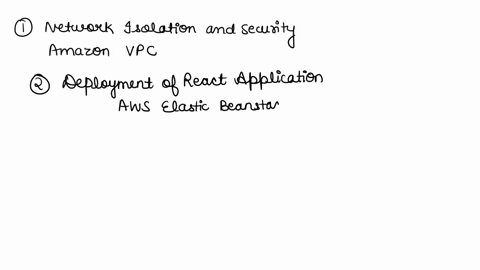 ① Network Isolation and security
Amazon VPC
② Deployment of React Application
AWS Elastic Beanstar